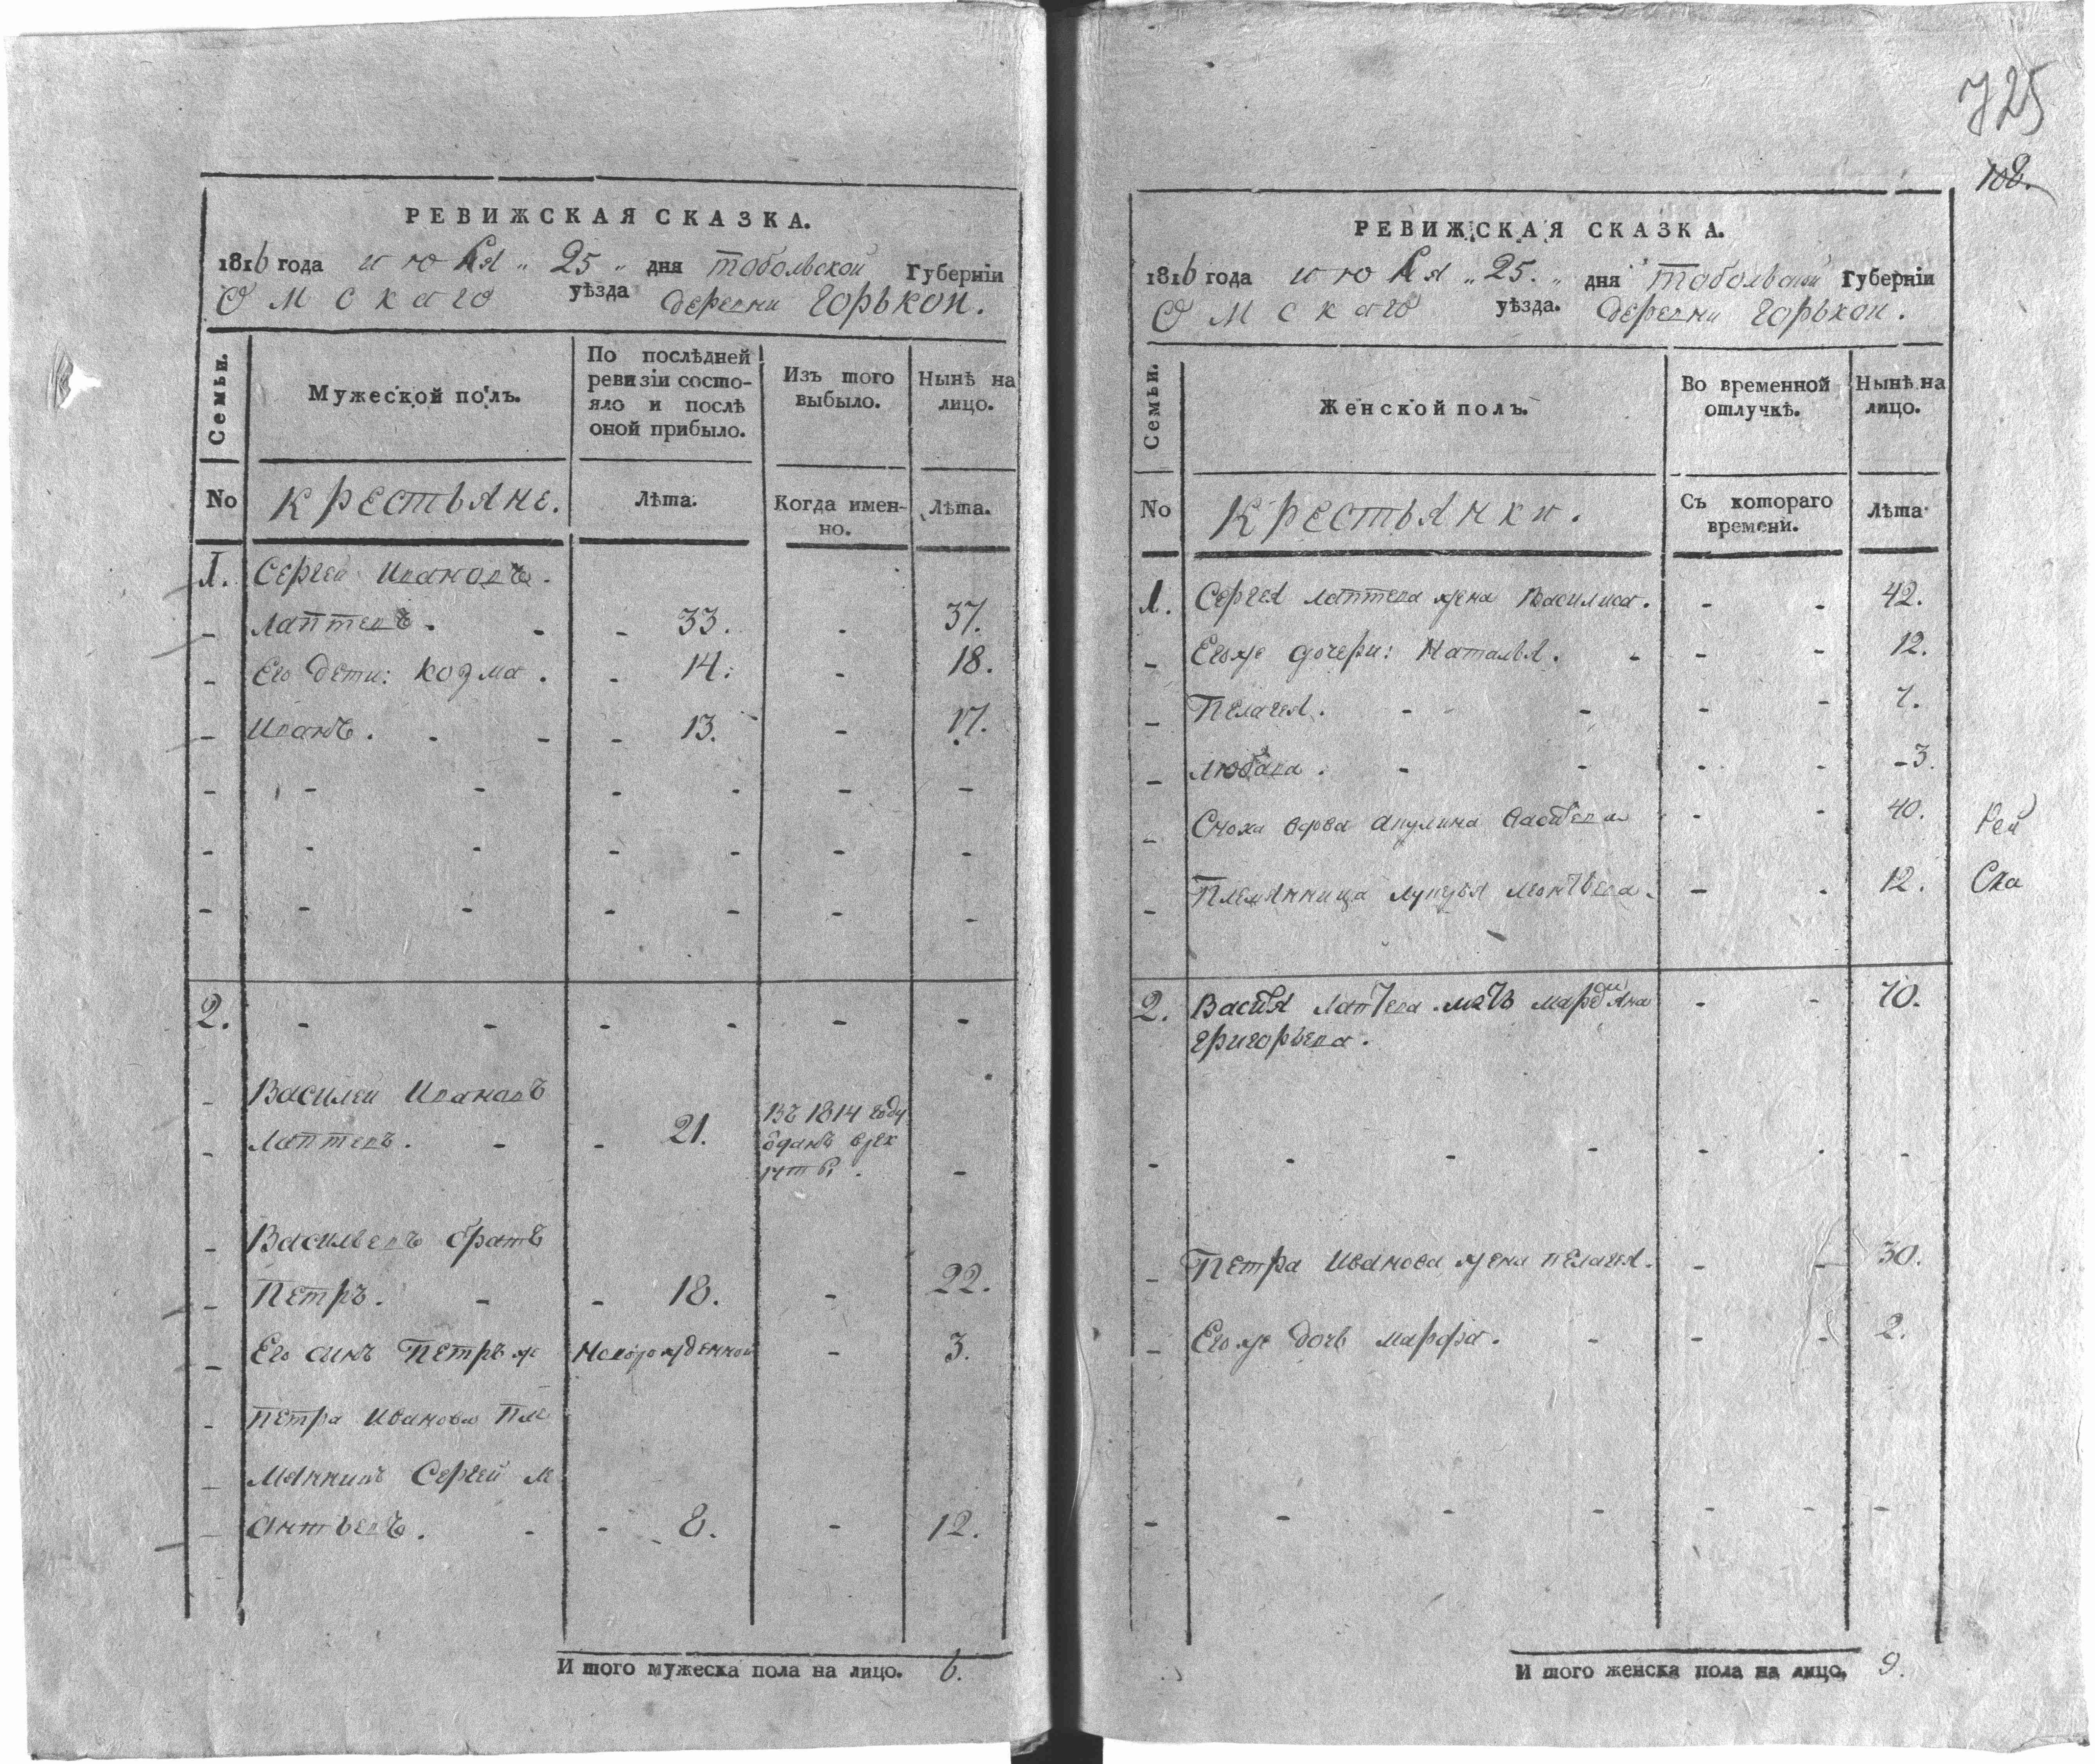 РЕВИЖСКАЯ СКАЗКА.
1816 года июля „ 25 „ дня тобольской Губернiи
Омскаго уѣзда деревни горькой.
Семьи.
Мужеской полъ.
По послѣдней
ревизiи состо-
яло и послѣ
оной прибыло.
Изъ того
выбыло.
Нынѣ на
лицо.
No
крестьяне.
Лѣта.
Когда имен-
но.
Лѣта.
1. Сергей Ивановъ.
Лаптевъ. 33. 37.
Его дети: козма. 14. 18.
Иванъ. 13. 17.
2.
Василей Ивановъ
Лаптевъ. 21.
Въ 1814 году
отданъ врек
руты.
Васильевъ братъ
Петръ. 18. 22.
Его сынъ Петръ же Новорожденной 3.
Петра Иванова Пле
мянникъ Сергей ле
онтьевъ. 8. 12.
И того мужеска пола на лицо. 6.
725
108.
РЕВИЖСКАЯ СКАЗКА.
1816 года июля „ 25. „ дня тобольской Губернiи
Омскаго уѣзда. деревни горькой.
Семьи.
Женской полъ.
Во временной
отлучкѣ.
Нынѣ на
лицо.
No
Крестьянки.
Съ котораго
времени.
Лѣта
1. Сергея лаптева жена Василиса. 42.
Егоже дочери: Наталья. 12.
Пелагея. 7.
Любава. 3.
Сноха вдова акулина 40.
Племянница лукерья леонтьева. 12.
Рей
Ска
2. Василья Лаптева мать маремьяна 70.
григорьева.
Петра Иванова жена пелагея. 30.
Егоже дочь марфа. 2.
И того женска пола на лицо. 9.